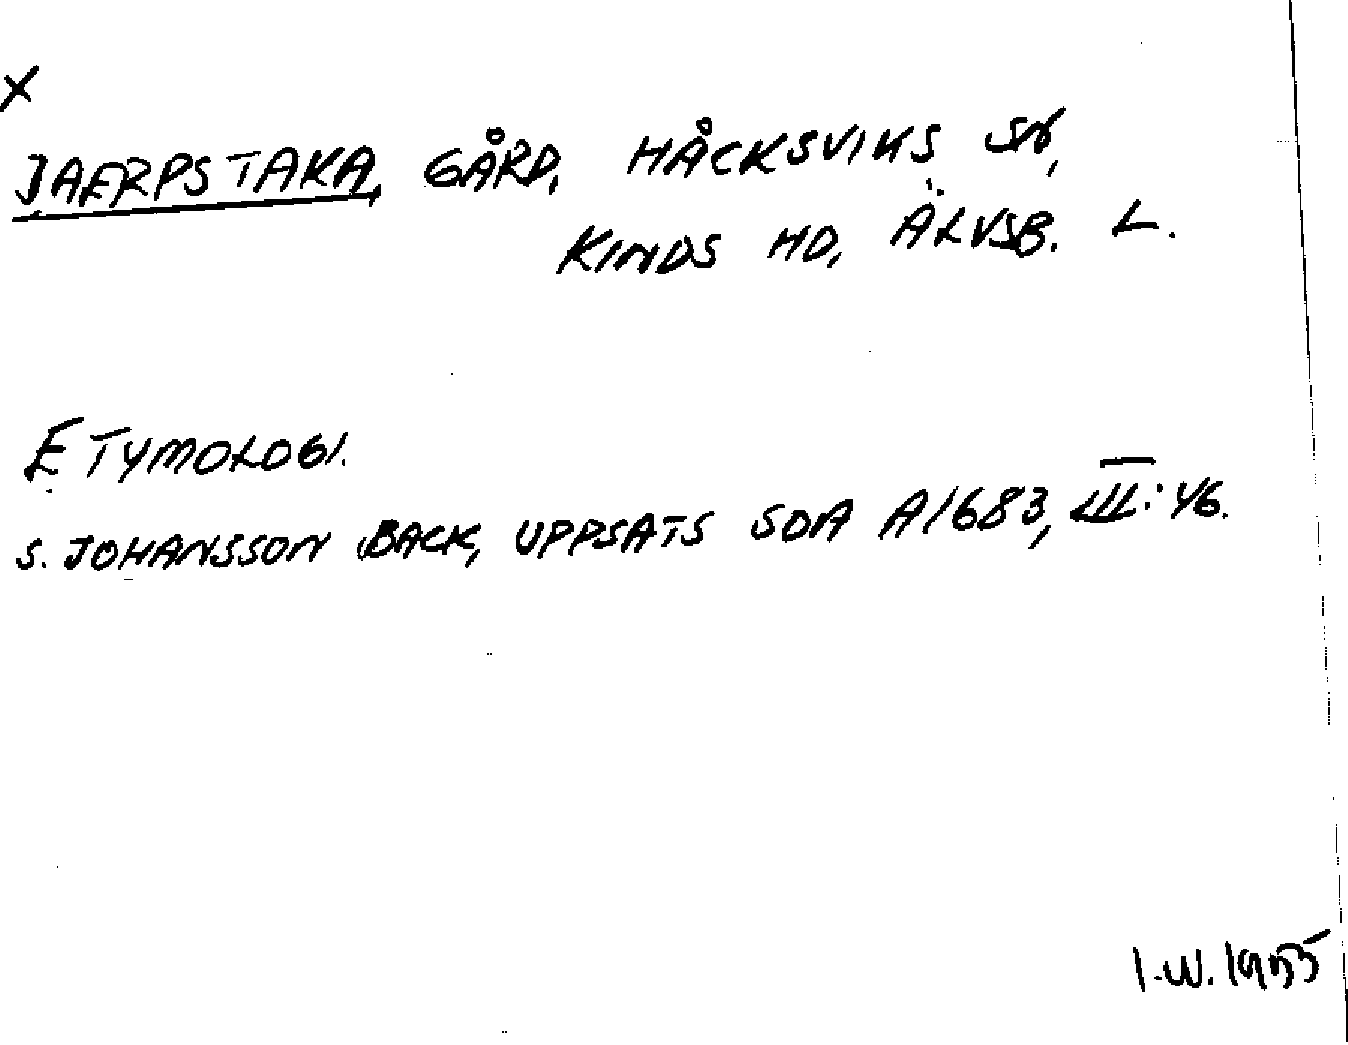 X
JAERPSTAKA, GÅRD, HÅCKSVIKS SN,
KINDS HD, ÄLVSB. L.
ETYMOLOGI.
S. JOHANSSON BACK, UPPSATS SOA A1683, III: 46.
I.W. 1955